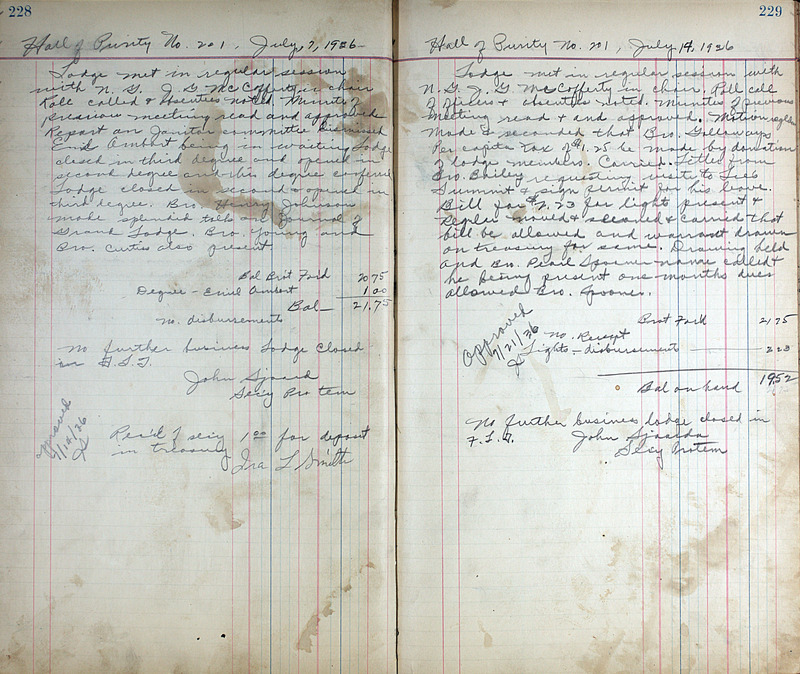 228
Hall of Purity No. 201, July, 7, 1926
Lodge met in regular session
with N. G. J. G. McCofferty in chair
Roll called & absenties noted. Minutes of
previous meeting read and approved
Report on Janitor committee dismissed
Emil Ambort being in waiting Lodge
closed in third degree and opened in
second degree and this degree conferred
Lodge closed in second & opened in
third degree. Bro. Henry Johnson
made splendid talk on Journal of
Grand Lodge. Bro. Young and
Bro. Curtis also present
Bal Brot Ford 20 75
Degree - Emil Ambort 1 00
Bal — 21.75
No. disbursements
No further business Lodge closed
in F.L.T.
John
Secy Pro tem
Approved
7/14/26
JS
Rec'd of secy 1 00 for deposit
in treasury Ira L Smith
229
Hall of Purity No. 201, July 14, 1926
Lodge met in regular session with
N. G. J. G. McCofferty in chair. Roll call
of officers & absenties noted. Minutes of previous
meeting read & and approved. Motion
made & seconded that Bro. Golloways
Per capita tax of $1.25 be made by donation
of lodge members. Carried. Letter from
Bro. Bailey requesting visit to Lees
Summit & sign permit for his leave.
Bill for $2.23 for light present &
moved & second & carried that
bill be allowed and warrant drawn
on treasury for same. Drawing held
and Bro. Pearl Spooner name called &
he being present one months dues
allowed Bro. Spooner.
Approved
7/21/26
JS
Brot Ford 21 75
No. Receipt
Lights - disbursement — 2 23
Bal on hand 19.52
No further business lodge closed in
F. L. T. John
Secy Protem